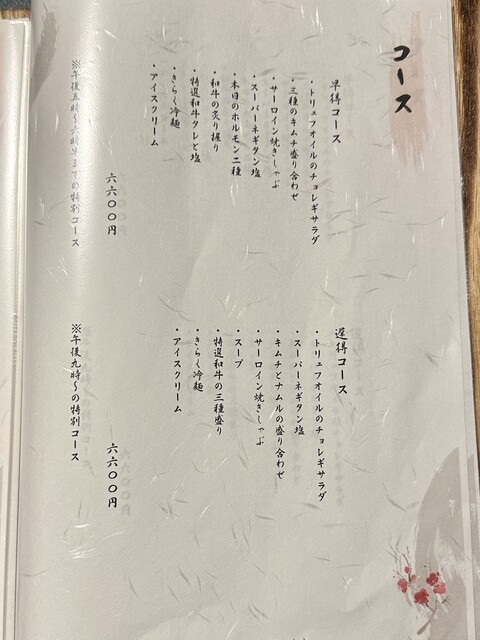 コース
早得コース
・トリュフオイルのチョレギサラダ
・三種のキムチ盛り合わせ
・サーロイン焼きしゃぶ
・スーパーネギタン塩
・本日のホルモン二種
・和牛の炙り握り
・特選和牛タレと塩
・きらく冷麺
・アイスクリーム
六六〇〇円
※午後五時〜六時半までの特別コース
遅得コース
・トリュフオイルのチョレギサラダ
・スーパーネギタン塩
・キムチとナムルの盛り合わせ
・サーロイン焼きしゃぶ
・スープ
・特選和牛の三種盛り
・きらく冷麺
・アイスクリーム
六六〇〇円
※午後九時〜の特別コース